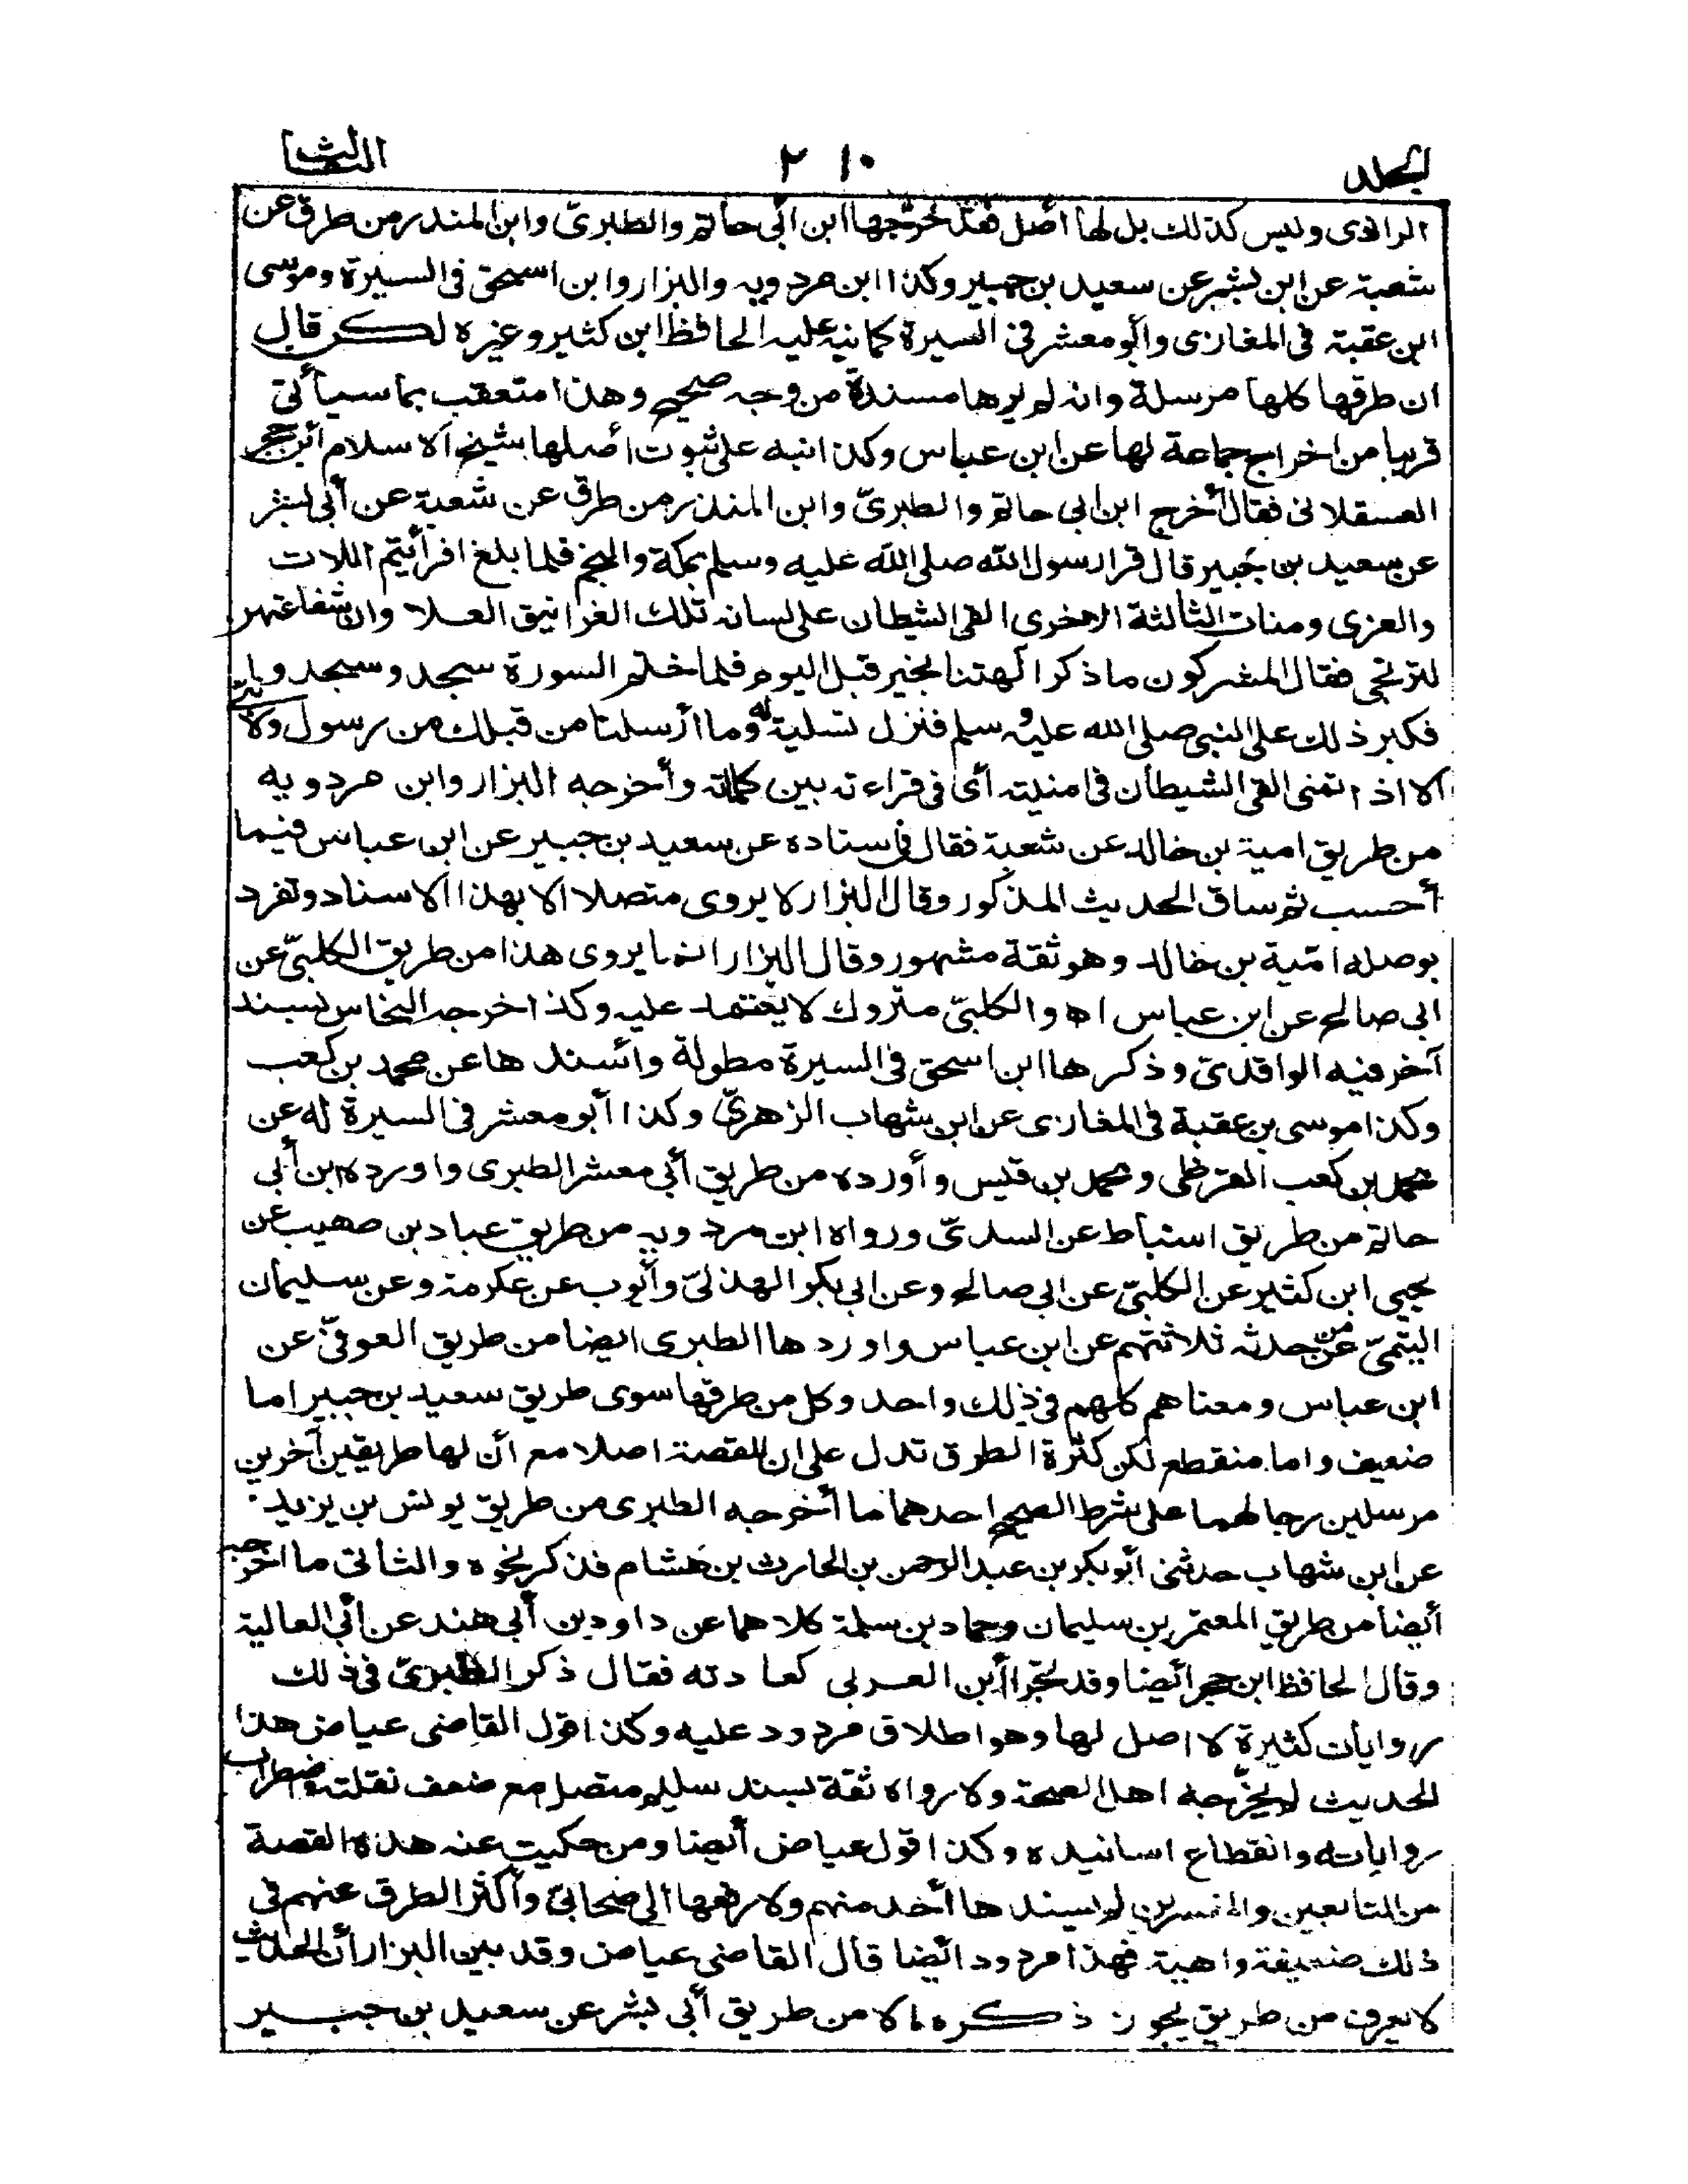 المجلد ٢١٠ الثالث
الرازى وليس كذلك بل لها أصل فقد خرّجها ابن أبى حاتم والطبرىّ وابن المنذر من طرق عن
شعبة عن ابن بشر عن سعيد بن جبير وكذا ابن مردويه والبزار وابن اسحق فى السيرة وموسى
ابن عقبة فى المغازى وأبو معشر فى السيرة كما نبه عليه الحافظ ابن كثير وغيره لكن قال
ان طرقها كلها مرسلة وانه لم يرها مسندة من وجه صحيح وهذا متعقب بما سيأتى
قريبا من اخراج جماعة لها عن ابن عباس وكذا نبه على ثبوت أصلها شيخ الاسلام ابن حجر
العسقلانى فقال أخرج ابن ابى حاتم والطبرىّ وابن المنذر من طرق عن شعبة عن أبى بشر
عن سعيد بن جبير قال قرا رسول الله صلى الله عليه وسلم بمكة والنجم فلما بلغ افرأيتم اللات
والعزى ومنات الثالثة الاخرى القى الشيطان على لسانه تلك الغرانيق العلا وان شفاعتهن
لترتجى فقال المشركون ما ذكر الهتنا بخير قبل اليوم فلما ختم السورة سجد وسجدوا
فكبر ذلك على النبى صلى الله عليه وسلم فنزل تسلية له وما أرسلنا من قبلك من رسول ولا نبىّ
الا اذا تمنى القى الشيطان فى امنيته أى فى قراءته بين كلماته وأخرجه البزار وابن مردويه
من طريق امية بن خالد عن شعبة فقال فى اسناده عن سعيد بن جبير عن ابن عباس فيما
أحسب ثم ساق الحديث المذكور وقال البزار لا يروى متصلا الا بهذا الاسناد وتفرد
بوصله امّية بن خالد وهو ثقة مشهور وقال البزار انما يروى هذا من طريق الكلبىّ عن
ابى صالح عن ابن عباس اه والكلبىّ متروك لا يعتمد عليه وكذا اخرجه النحاس بسند
آخر فيه الواقدىّ وذكرها ابن اسحق فى السيرة مطولة وأسندها عن محمد بن كعب
وكذا موسى بن عقبة فى المغازى عن ابن شهاب الزهرىّ وكذا أبو معشر فى السيرة له عن
محمد بن كعب القرظى ومحمد بن قيس وأورده من طريق أبى معشر الطبرى واورده ابن أبى
حاتم من طريق اسباط عن السدىّ ورواه ابن مردويه من طريق عباد بن صهيب عن
يحيى ابن كثير عن الكلبىّ عن ابى صالح وعن ابى بكر الهذلىّ وأيوب عن عكرمة وعن سليمان
التيمىّ عن من حدثه ثلاثتهم عن ابن عباس واوردها الطبرى ايضا من طريق العوفىّ عن
ابن عباس ومعناهم كلهم فى ذلك واحد وكل من طرقها سوى طريق سعيد بن جبير اما
ضعيف واما منقطع لكن كثرة الطرق تدل على ان للقصة اصلا مع أن لها طريقين آخرين
مرسلين رجالهما على شرط الصحيح احدهما ما أخرجه الطبرى من طريق يونس بن يزيد
عن ابن شهاب حدثنى أبو بكر بن عبد الرحمن بن الحارث بن هشام فذكر نحوه والثانى ما اخرجه
أيضا من طريق المعتمر بن سليمان وحماد بن سلمة كلاهما عن داود بن أبى هند عن أبى العالية
وقال الحافظ ابن حجر أيضا وقد تجرّا ابن العربى كعادته فقال ذكر الطبرىّ فى ذلك
روايات كثيرة لا اصل لها وهو اطلاق مردود عليه وكذا قول القاضى عياض هذا
الحديث لم يخرّجه اهل الصحة ولا رواه ثقة بسند سليم متصل مع ضعف نقلته واضطراب
رواياته وانقطاع اسانيده وكذا قول عياض أيضا ومن حكيت عنه هذه القصة
من التابعين والمفسرين لم يسندها أحد منهم ولا رفعها الى صحابىّ وأكثر الطرق عنهم فى
ذلك ضعيفة واهية فهذا مردود ائضا قال القاضى عياض وقد بين البزار أن الحديث
لا يعرف من طريق يجوز ذكره الا من طريق أبى بشر عن سعيد بن جبير